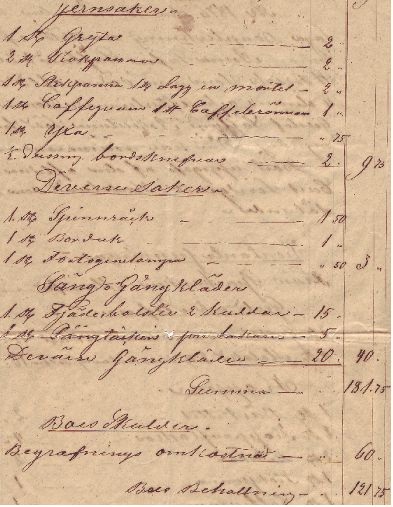 Jernsaker.
1 st Gryta — 2.
2 st Stekpannor 2 "
1 st Stekpanna 1 st Lagg en mortel — 2 "
1 st Caffequarn 1 st Caffebrännare 1 "
1 st Yxa — " 75
½ dussin bordsknifvar — 2. 9 75
Diverse Saker.
1 st Spinnråck — 1 50
1 st Borduk — 1 "
1 st — " 50 3 "
Säng & Gångkläder
1 st Fjäderbolster 2 Kuddar — 15.
1 st Sängtäcken — 5.
Diverse Gångkläder — 20. 40.
Summa — 181.75
Boets Skulder.
Begrafnings omkostnad — 60.
Boets Behållning — 121 75